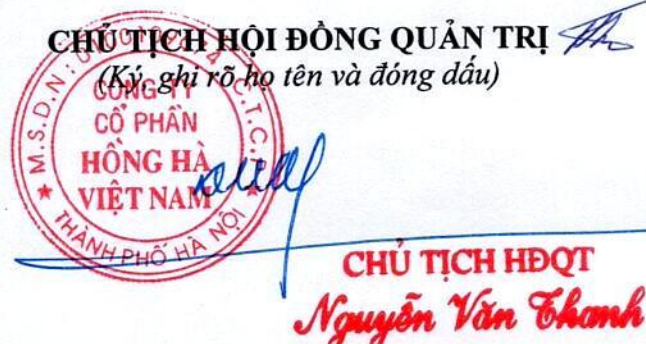 CHỦ TỊCH HỘI ĐỒNG QUẢN TRỊ
(Ký, ghi rõ họ tên và đóng dấu)
M.S.D.N:
C.T.C.P
CÔNG TY
CỔ PHẦN
HỒNG HÀ
VIỆT NAM
THÀNH PHỐ HÀ NỘI
CHỦ TỊCH HĐQT
Nguyễn Văn Thanh